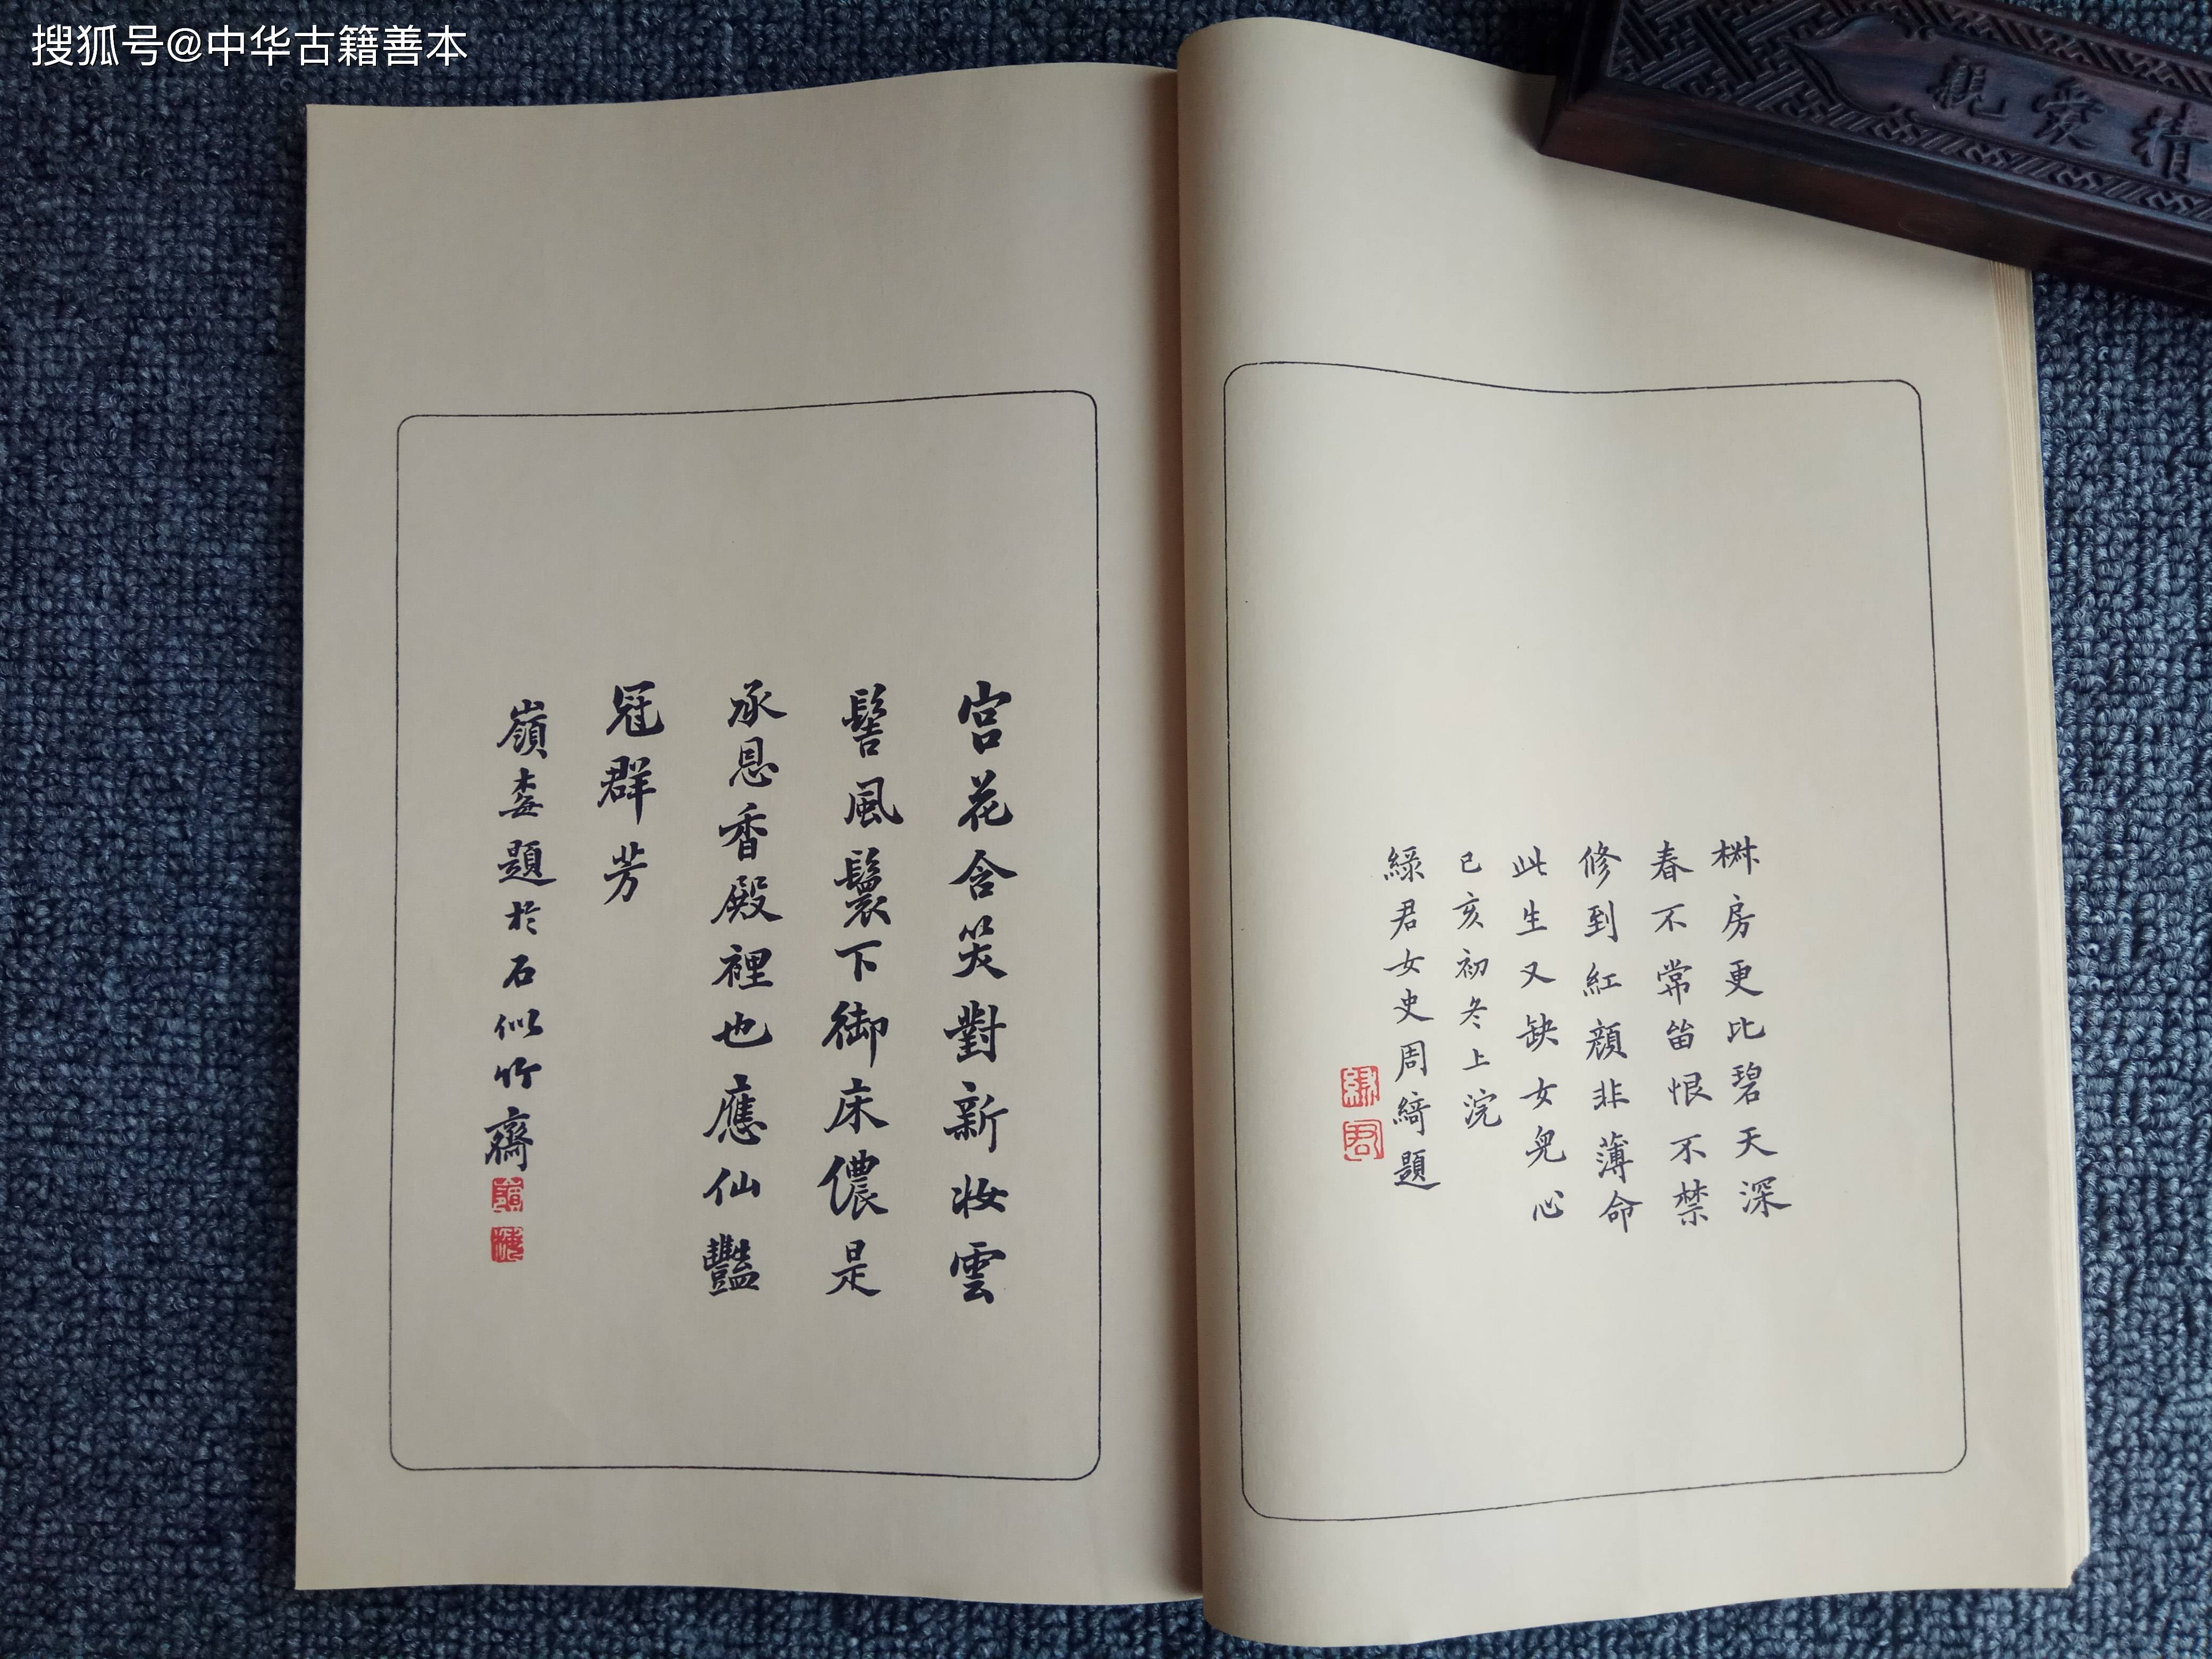 搜狐号@中华古籍善本
親愛精
椒房更比碧天深
春不常留恨不禁
修到紅顔非薄命
此生又缺女兒心
已亥初冬上浣
綠君女史周綺題
綠君
宮花含笑對新妝雲
髻風鬟下御床儂是
承恩香殿裡也應仙豔
冠群芳
嶺楳題於石似竹齋
嶺梅